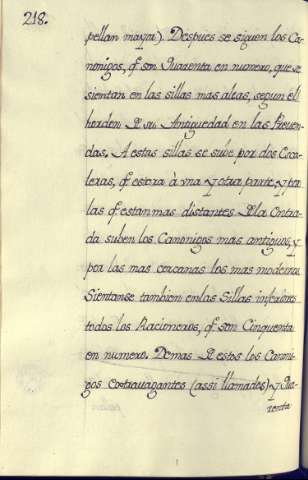 218.
pellan mayor). Despues se siguen los Ca-
nonigos, q̃ son Quarenta en numero, que se
sientan en las sillas mas altas, segun el
horden D su Antiguedad en las Preven-
das. A estas sillas se sube por dos Esca-
leras, q̃ estan à vna y otra parte, y por
las q̃ estan mas distantes D la Entra-
da suben los Canonigos mas antiguos, y
por las mas cercanas los mas modernos
Sientanse tambien en las Sillas inferiores
todos los Racioneros, q̃ son Cinquenta
en numero. Demas D estos los Canoni-
gos extravagantes (assi llamados) y Qua-
renta